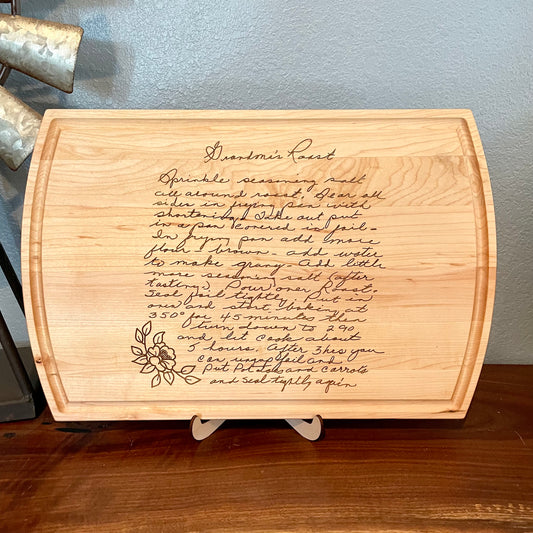 Grandma's Roast
Sprinkle seasoning salt
all around roast. Sear all
sides in frying pan with
shortening. Take out put
in a pan covered in foil -
In frying pan add more
flour - brown - add water
to make gravy - Add little
more seasoning salt (after
tasting). Pour over Roast.
Seal foil tightly. Put in
oven and start baking at
350° for 45 minutes then
turn down to 290
and let cook about
5 hours. After 3 hrs you
can unwrap foil and
Put Potatoes and carrots
and seal tightly again